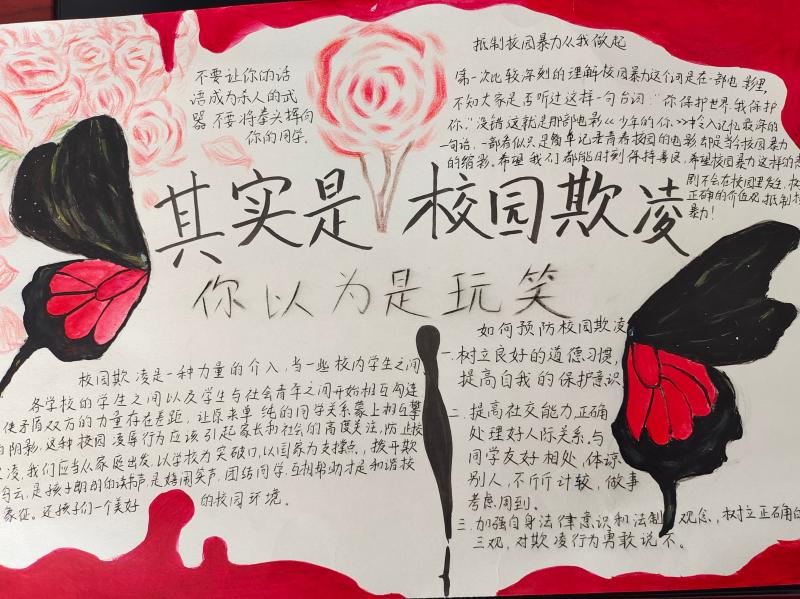 不要让你的话
语成为杀人的武
器不要将拳头挥向
你的同学.
抵制校园暴力从我做起
第一次比较深刻的理解校园暴力这个词是在一部电影里,
不知大家是否听过这样一句台词:“你保护世界,我保护
你.”没错这就是那部电影《少年的你》中令人记忆最深的
一句话,一部看似只是简单记录青春校园的电影却是当今校园暴力
的缩影.希望我们都能时刻保持善良,希望校园暴力这样的
剧不会在校园里发生,
正确的价值观,抵制
暴力!
其实是校园欺凌
你以为是玩笑
校园欺凌是一种力量的介入,当一些校内学生之间,
各学校的学生之间以及学生与社会青年之间开始相互勾连
使矛盾双方的力量存在差距,让原来单纯的同学关系蒙上相互攀
阴影.这种校园凌辱行为应该引起家长和社会的高度关注,防止校
凌,我们应当从家庭出发,以学校为突破口,以国家为支撑点,拨开欺
云,是孩子朗朗的读书声是嬉闹笑声,团结同学互相帮助才是和谐校
象征.还孩子们一个美好的校园环境.
如何预防校园欺凌
一.树立良好的道德习惯,
提高自我的保护意识.
二.提高社交能力,正确
处理好人际关系,与
同学友好相处,体谅
别人,不斤斤计较,做事
考虑周到.
三.加强自身法律意识和法制观念,树立正确的
三观,对欺凌行为勇敢说不.